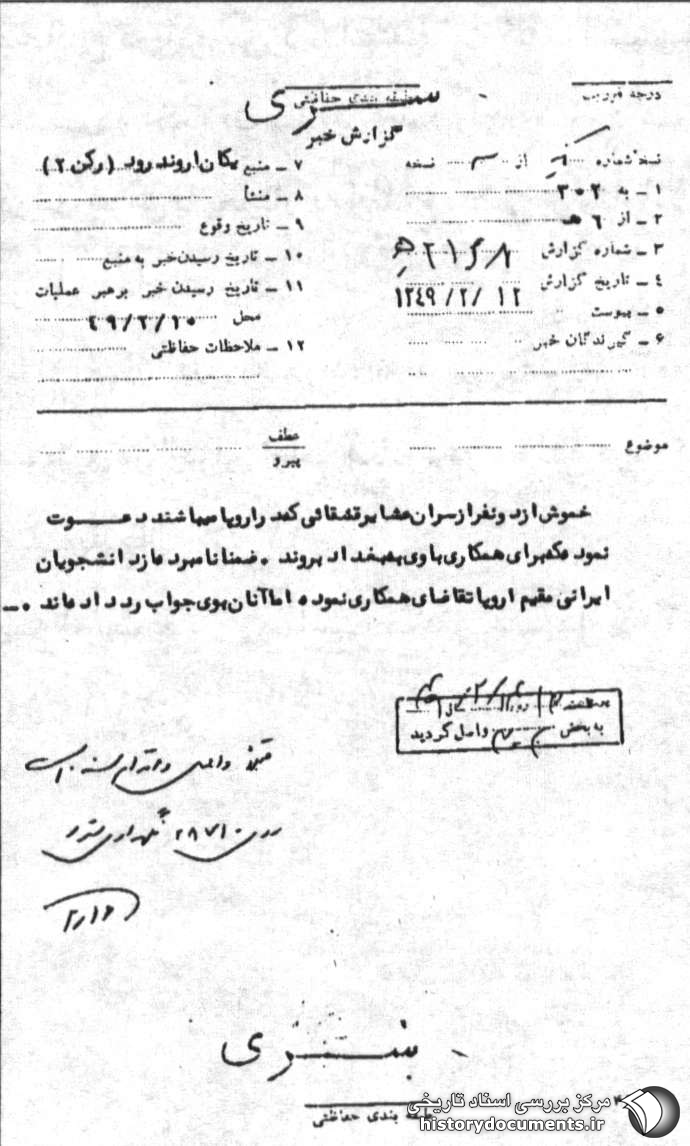 درجه فوریت
طبقه بندی حفاظتی
سری
گزارش خبر
نسخه شماره از نسخه
۱ ـ به ۳۰۲
۲ ـ از ۶ هـ
۳ ـ شماره گزارش
۴ ـ تاریخ گزارش ۱۳٤۹/۲/۱۲
۵ ـ پیوست
۶ ـ گیرندگان خبر
۷ ـ منبع یکان اروند رود (رکن ۲)
۸ ـ منشأ
۹ ـ تاریخ وقوع
۱۰ ـ تاریخ رسیدن خبر به منبع
۱۱ ـ تاریخ رسیدن خبر برهبر عملیات
محل ٤۹/۲/۱۰
۱۲ ـ ملاحظات حفاظتی
موضوع
عطف
پیرو
خموش از دو نفر از سران عشایر قشقائی که در اروپا میباشند دعوت
نموده که برای همکاری با وی به بغداد بروند ۰ ضمنا نامبرده از دانشجویان
ایرانی مقیم اروپا تقاضای همکاری نموده اما آنان بوی جواب رد داده اند ۰ـ
به بخش واصل گردید
سری
طبقه بندی حفاظتی
مرکز بررسی اسناد تاریخی
historydocuments.ir